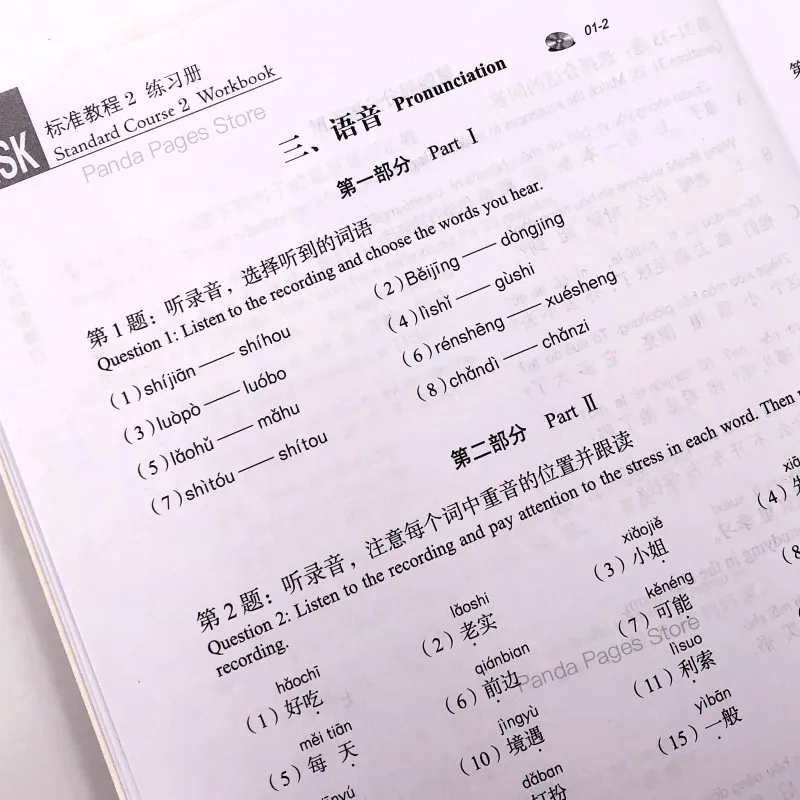 SK
标准教程 2 练习册
Standard Course 2 Workbook
Panda Pages Store
01-2
三、语音 Pronunciation
第一部分 Part Ⅰ
第 1 题：听录音，选择听到的词语
Question 1: Listen to the recording and choose the words you hear.
(1) shíjiān —— shíhou
(2) Běijīng —— dòngjing
(3) luòpò —— luóbo
(4) lìshǐ —— gùshi
(5) lǎohǔ —— mǎhu
(6) rénshēng —— xuésheng
(7) shìtóu —— shítou
(8) chǎndì —— chǎnzi
第二部分 Part Ⅱ
第 2 题：听录音，注意每个词中重音的位置并跟读
Question 2: Listen to the recording and pay attention to the stress in each word. Then
recording.
hǎochī
(1) 好吃
lǎoshi
(2) 老实
xiǎojiě
(3) 小姐
(4)
měi tiān
(5) 每 天
qiánbian
(6) 前边
kěnéng
(7) 可能
Panda Pages Store
jìngyù
(10) 境遇
lìsuo
(11) 利索
yìbān
(15) 一般
dǎban
打扮